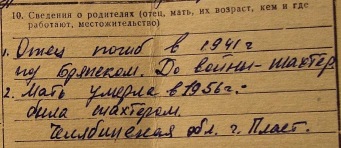 10. Сведения о родителях (отец, мать, их возраст, кем и где
работают, местожительство)
1. Отец погиб в 1941 г
под Брянском. До войны - шахтер.
2. Мать умерла в 1956 г. -
была шахтером.
Челябинская обл. г. Пласт.